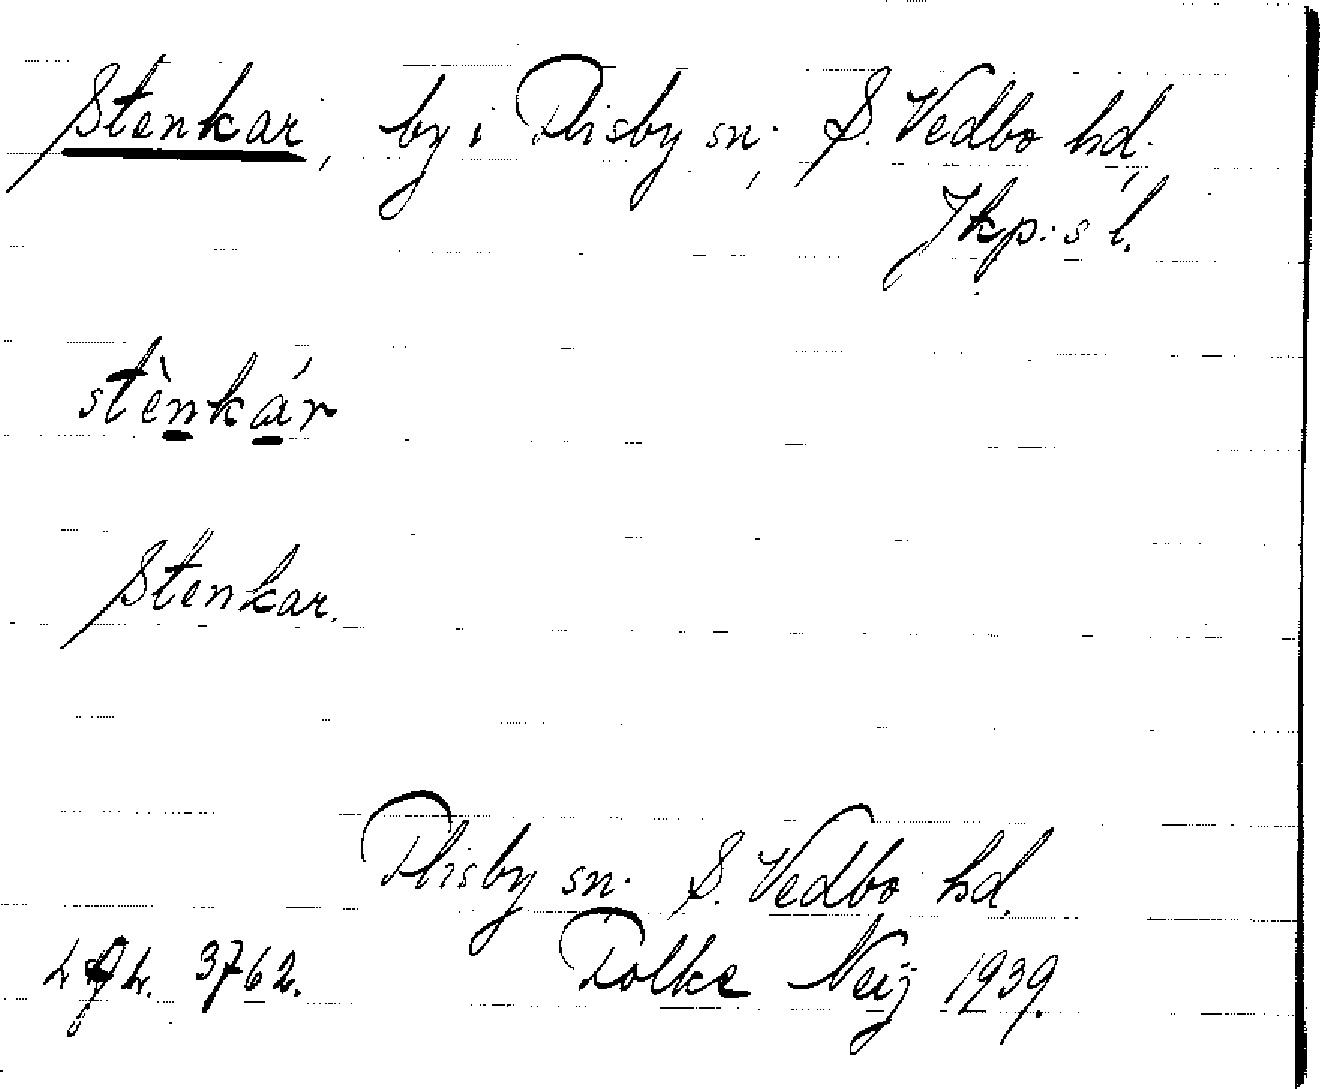 Stenkar, by i Flisby sn, S. Vedbo hd.
Jkp:s l.
stènkár
Stenkar.
Flisby sn. S. Vedbo hd.
3762. Folke Neij 1939.